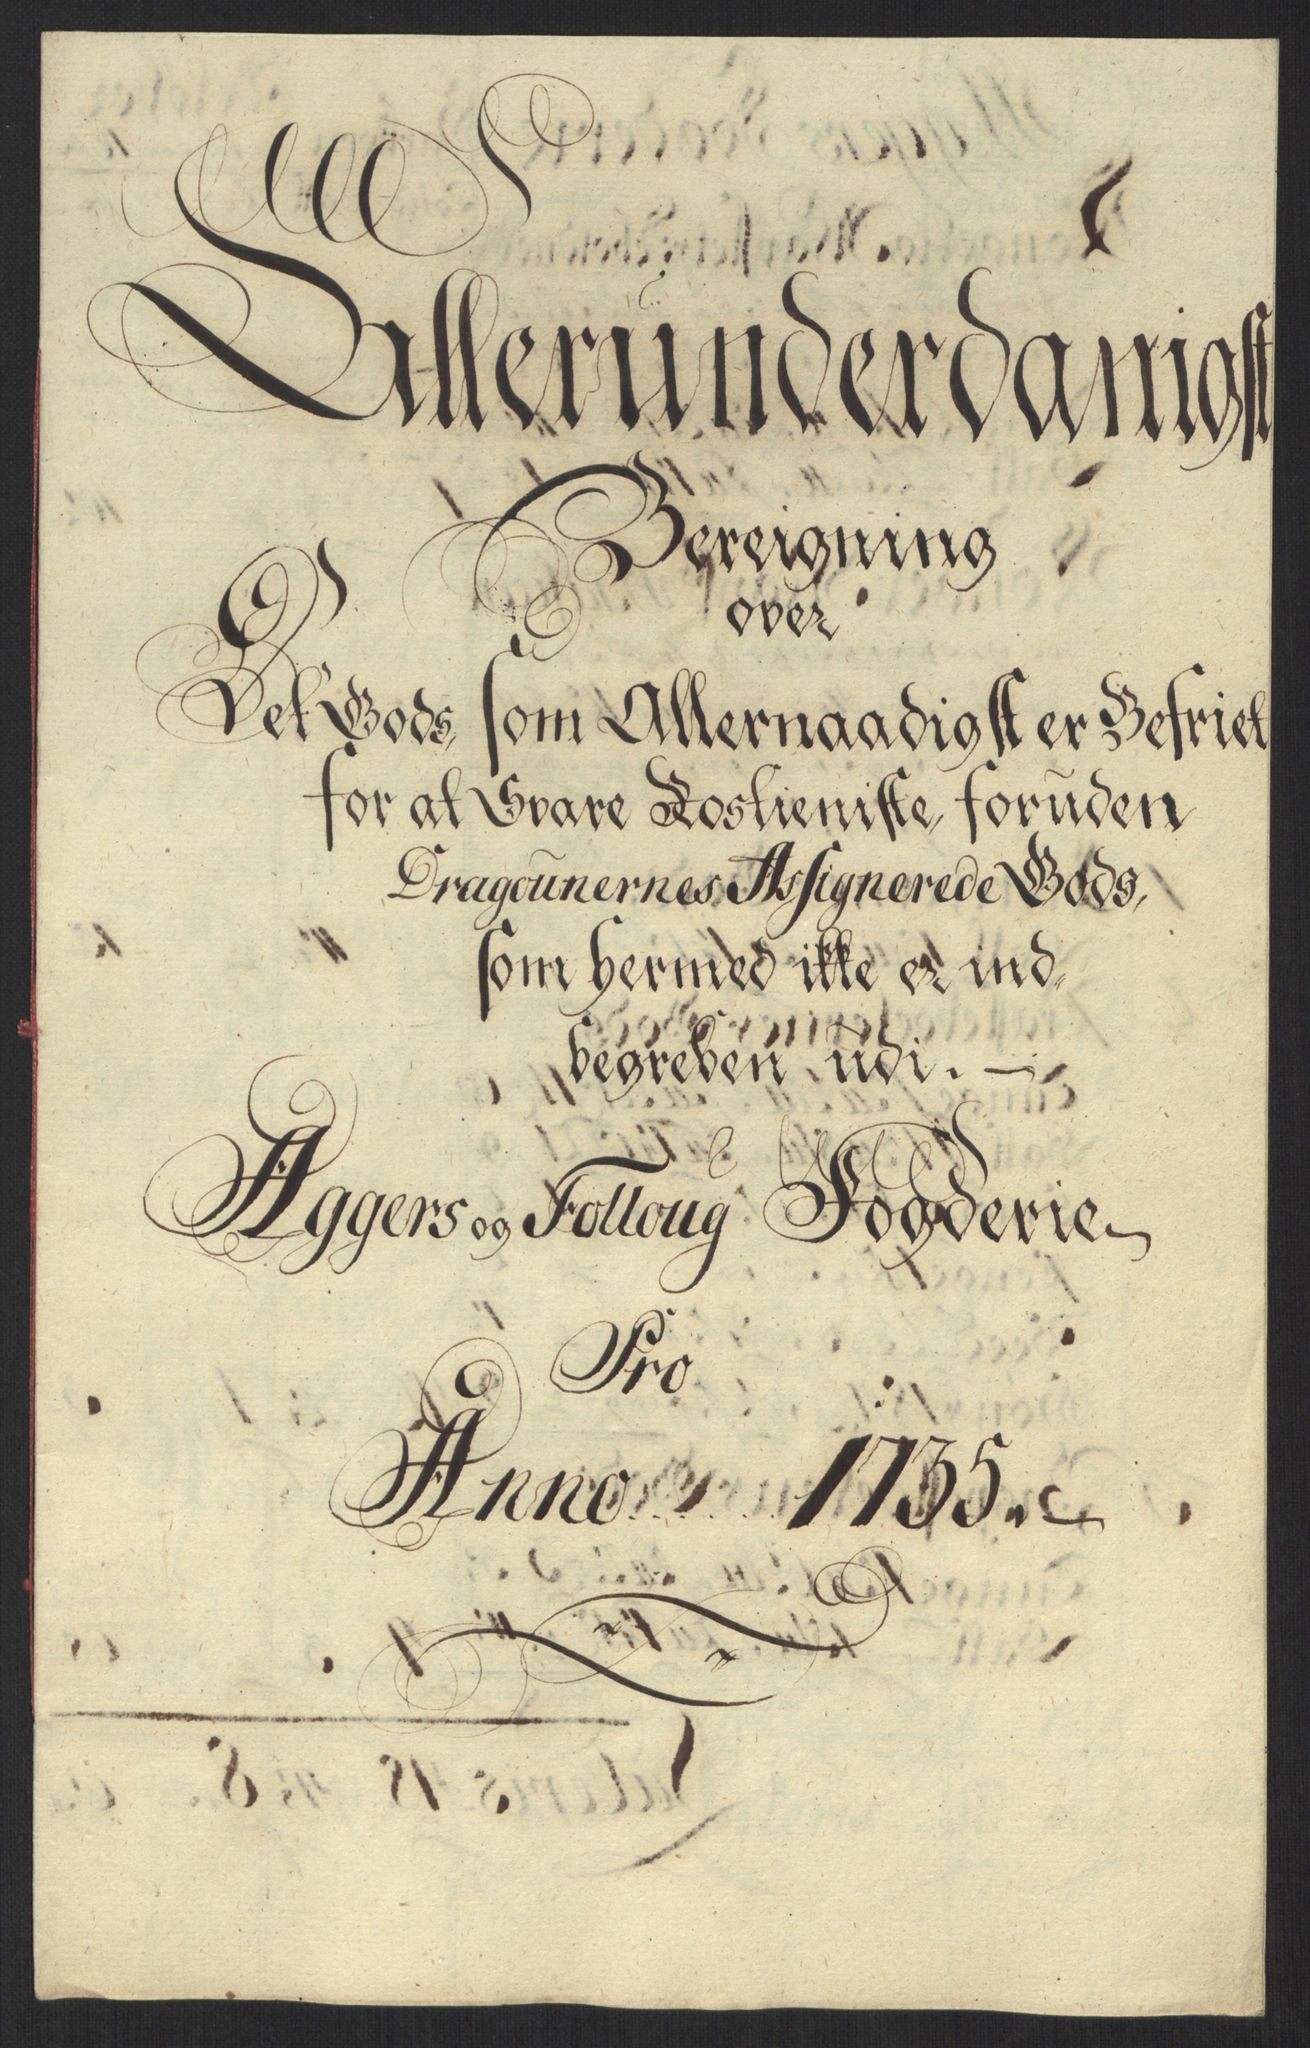 Allerunderdanigst
Bereigning
over
Det Gods, som Allernaadigst er Befriet
for at Svare Rostieniste, foruden
Dragounernes Assignerede Gods,
som hermed ikke er ind-
begreben udi.
Aggers og Folloug Fogderie
Pro
Anno 1735.